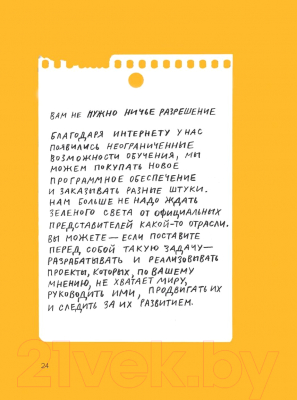 ВАМ НЕ НУЖНО НИЧЬЕ РАЗРЕШЕНИЕ
БЛАГОДАРЯ ИНТЕРНЕТУ У НАС
ПОЯВИЛИСЬ НЕОГРАНИЧЕННЫЕ
ВОЗМОЖНОСТИ ОБУЧЕНИЯ, МЫ
МОЖЕМ ПОКУПАТЬ НОВОЕ
ПРОГРАММНОЕ ОБЕСПЕЧЕНИЕ
И ЗАКАЗЫВАТЬ РАЗНЫЕ ШТУКИ.
НАМ БОЛЬШЕ НЕ НАДО ЖДАТЬ
ЗЕЛЕНОГО СВЕТА ОТ ОФИЦИАЛЬНЫХ
ПРЕДСТАВИТЕЛЕЙ КАКОЙ-ТО ОТРАСЛИ.
ВЫ МОЖЕТЕ — ЕСЛИ ПОСТАВИТЕ
ПЕРЕД СОБОЙ ТАКУЮ ЗАДАЧУ —
РАЗРАБАТЫВАТЬ И РЕАЛИЗОВЫВАТЬ
ПРОЕКТЫ, КОТОРЫХ, ПО ВАШЕМУ
МНЕНИЮ, НЕ ХВАТАЕТ МИРУ,
РУКОВОДИТЬ ИМИ, ПРОДВИГАТЬ ИХ
И СЛЕДИТЬ ЗА ИХ РАЗВИТИЕМ.
24
21vek.by